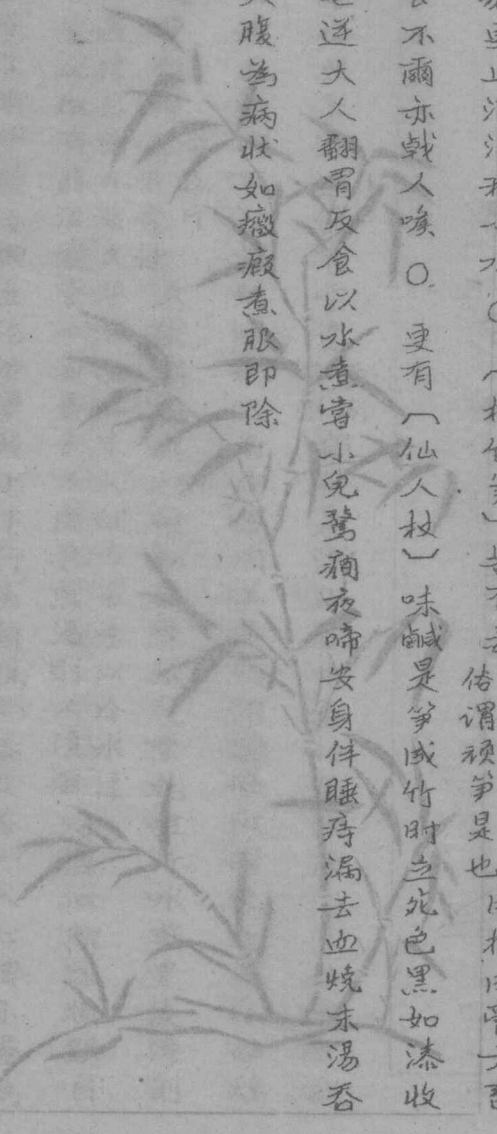 俗謂頑笋是也
不爾亦戟人喉〇更有〔仙人杖〕味鹹是笋成竹时立死色黑如漆收
逆大人翻胃反食以水煮嘗小兒驚癎夜啼安身伴睡痔漏去血燒末湯吞
腹為病状如癥瘕煮服即除